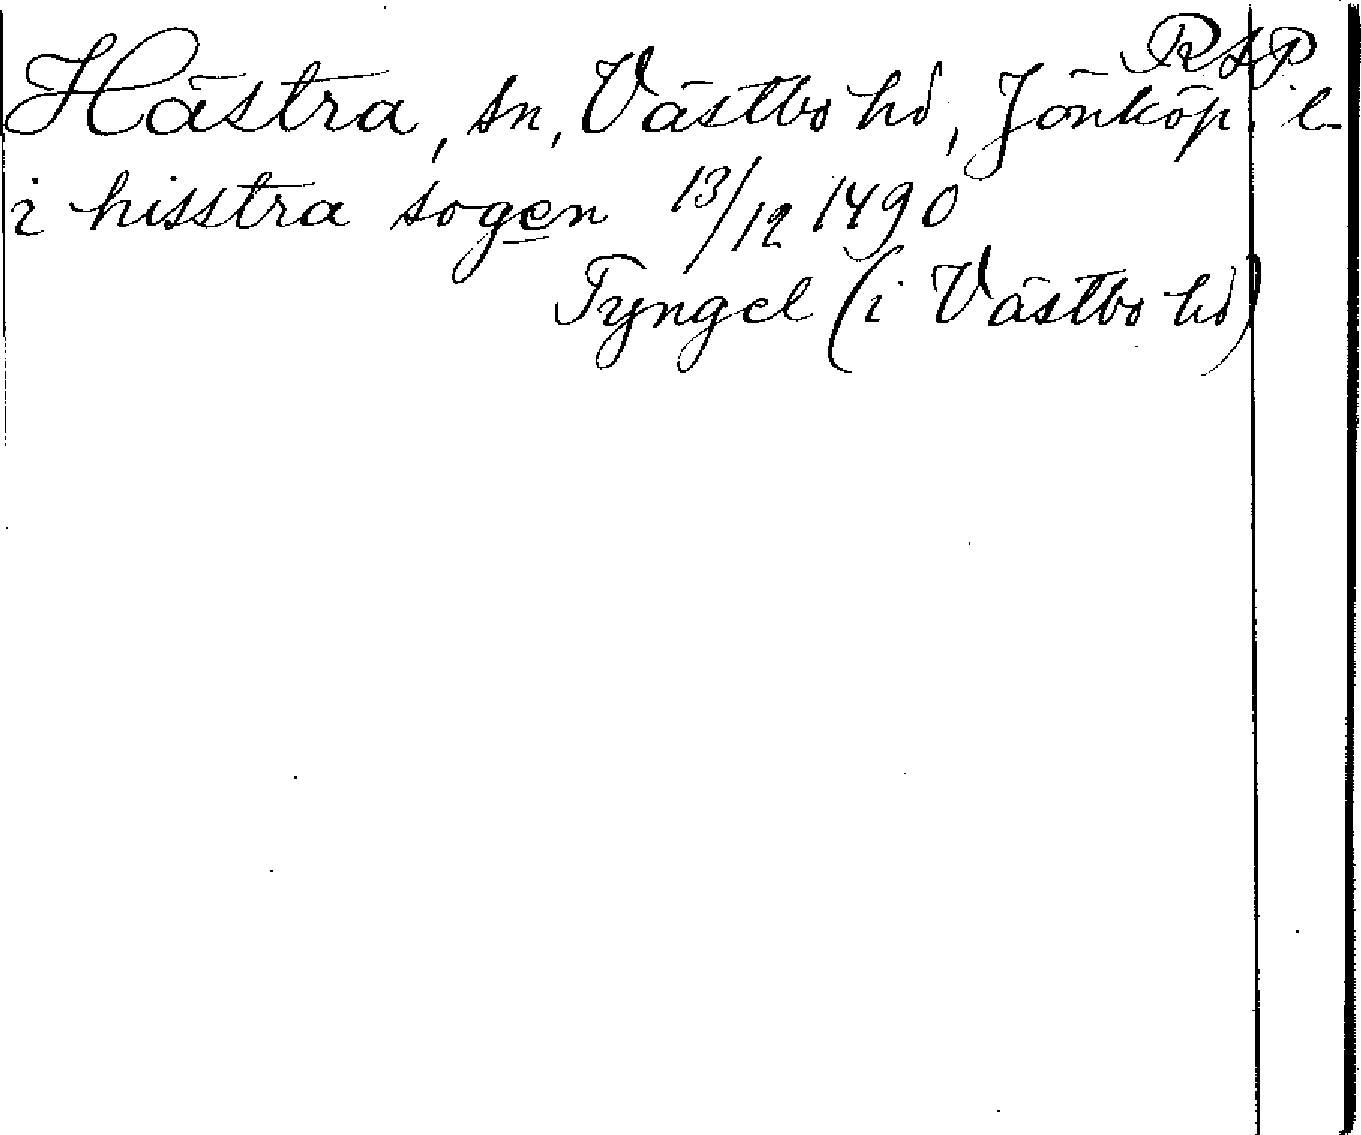 RAP
Hästra, sn, Västbo hd, Jönköp. l.
i hisstra sogen 13/12 1490
Tyngel (i Västbo hd)